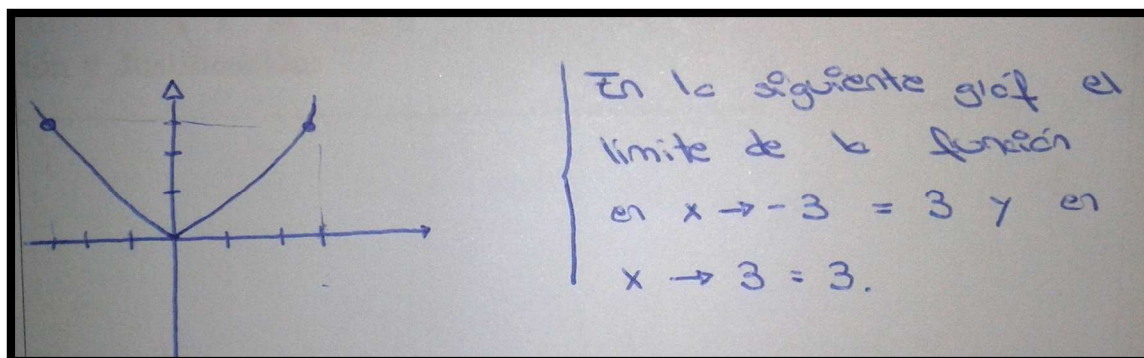 En la siguiente gráf el
límite de la función
en x → -3 = 3 y en
x → 3 = 3.